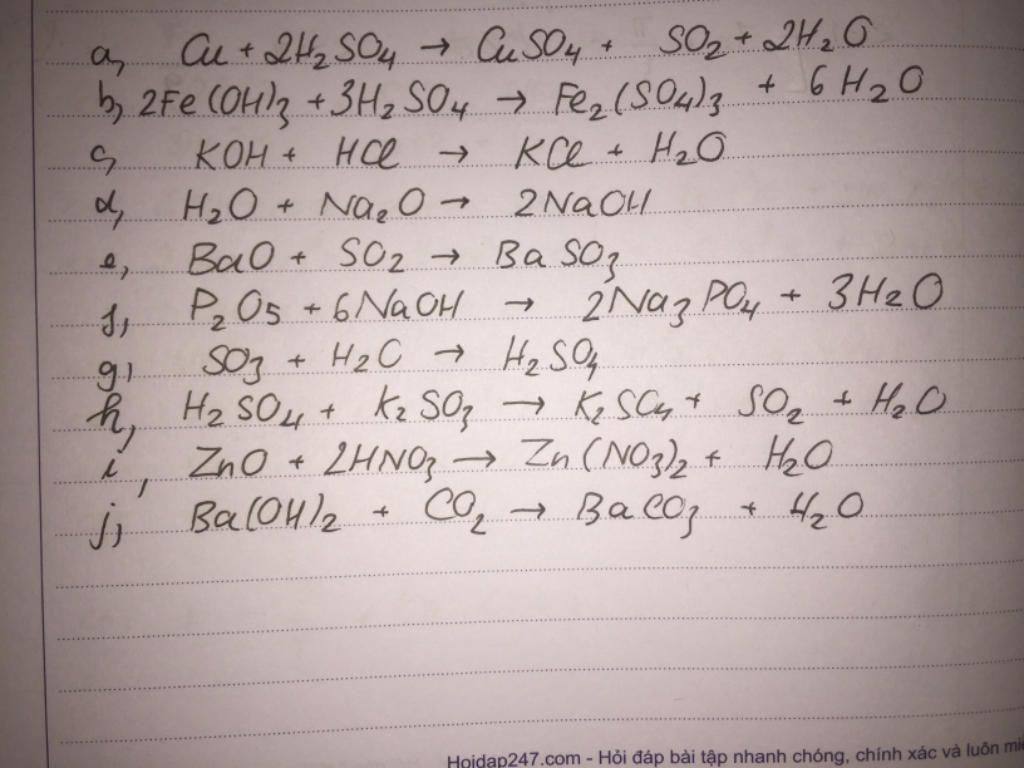 a, Cu + 2H₂SO₄ → CuSO₄ + SO₂ + 2H₂O
b, 2Fe(OH)₃ + 3H₂SO₄ → Fe₂(SO₄)₃ + 6H₂O
c, KOH + HCl → KCl + H₂O
d, H₂O + Na₂O → 2NaOH
e, BaO + SO₂ → BaSO₃
f, P₂O₅ + 6NaOH → 2Na₃PO₄ + 3H₂O
g, SO₃ + H₂O → H₂SO₄
h, H₂SO₄ + K₂SO₃ → K₂SO₄ + SO₂ + H₂O
i, ZnO + 2HNO₃ → Zn(NO₃)₂ + H₂O
j, Ba(OH)₂ + CO₂ → BaCO₃ + H₂O
Hoidap247.com - Hỏi đáp bài tập nhanh chóng, chính xác và luôn